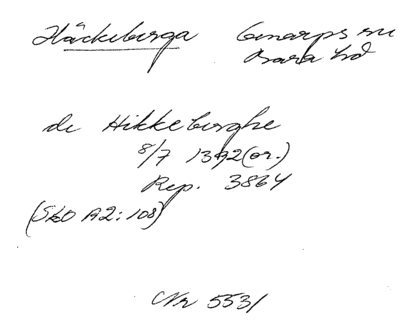 Häckeberga Genarps sn
Bara hd
de Hikkeberghe
8/7 1392 (or.)
Rep. 3864
(SkO A2:108)
Nr 5531